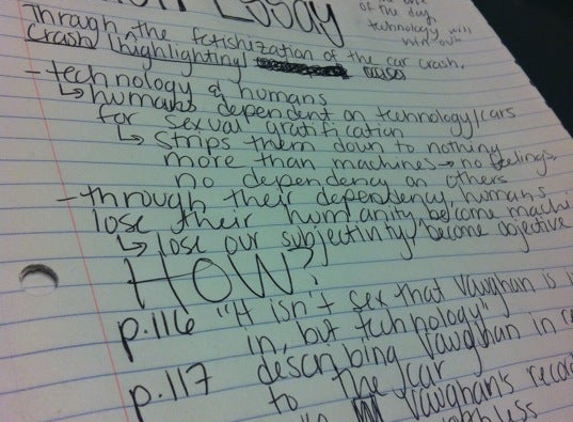 Essay
of the day,
technology will
win out
Through the fetishization of the car crash,
Crash highlighting
- technology & humans
↳ humans dependent on technology/cars
for sexual gratification
↳ strips them down to nothing
more than machines → no feelings
no dependency on others
- through their dependency, humans
lose their humanity, become machi
↳ lose our subjectivity/become objective
HOW?
p.116 "It isn't sex that Vaughan is i
in, but technology"
p.117 describing Vaughan in re
to the car
Vaughan's reco